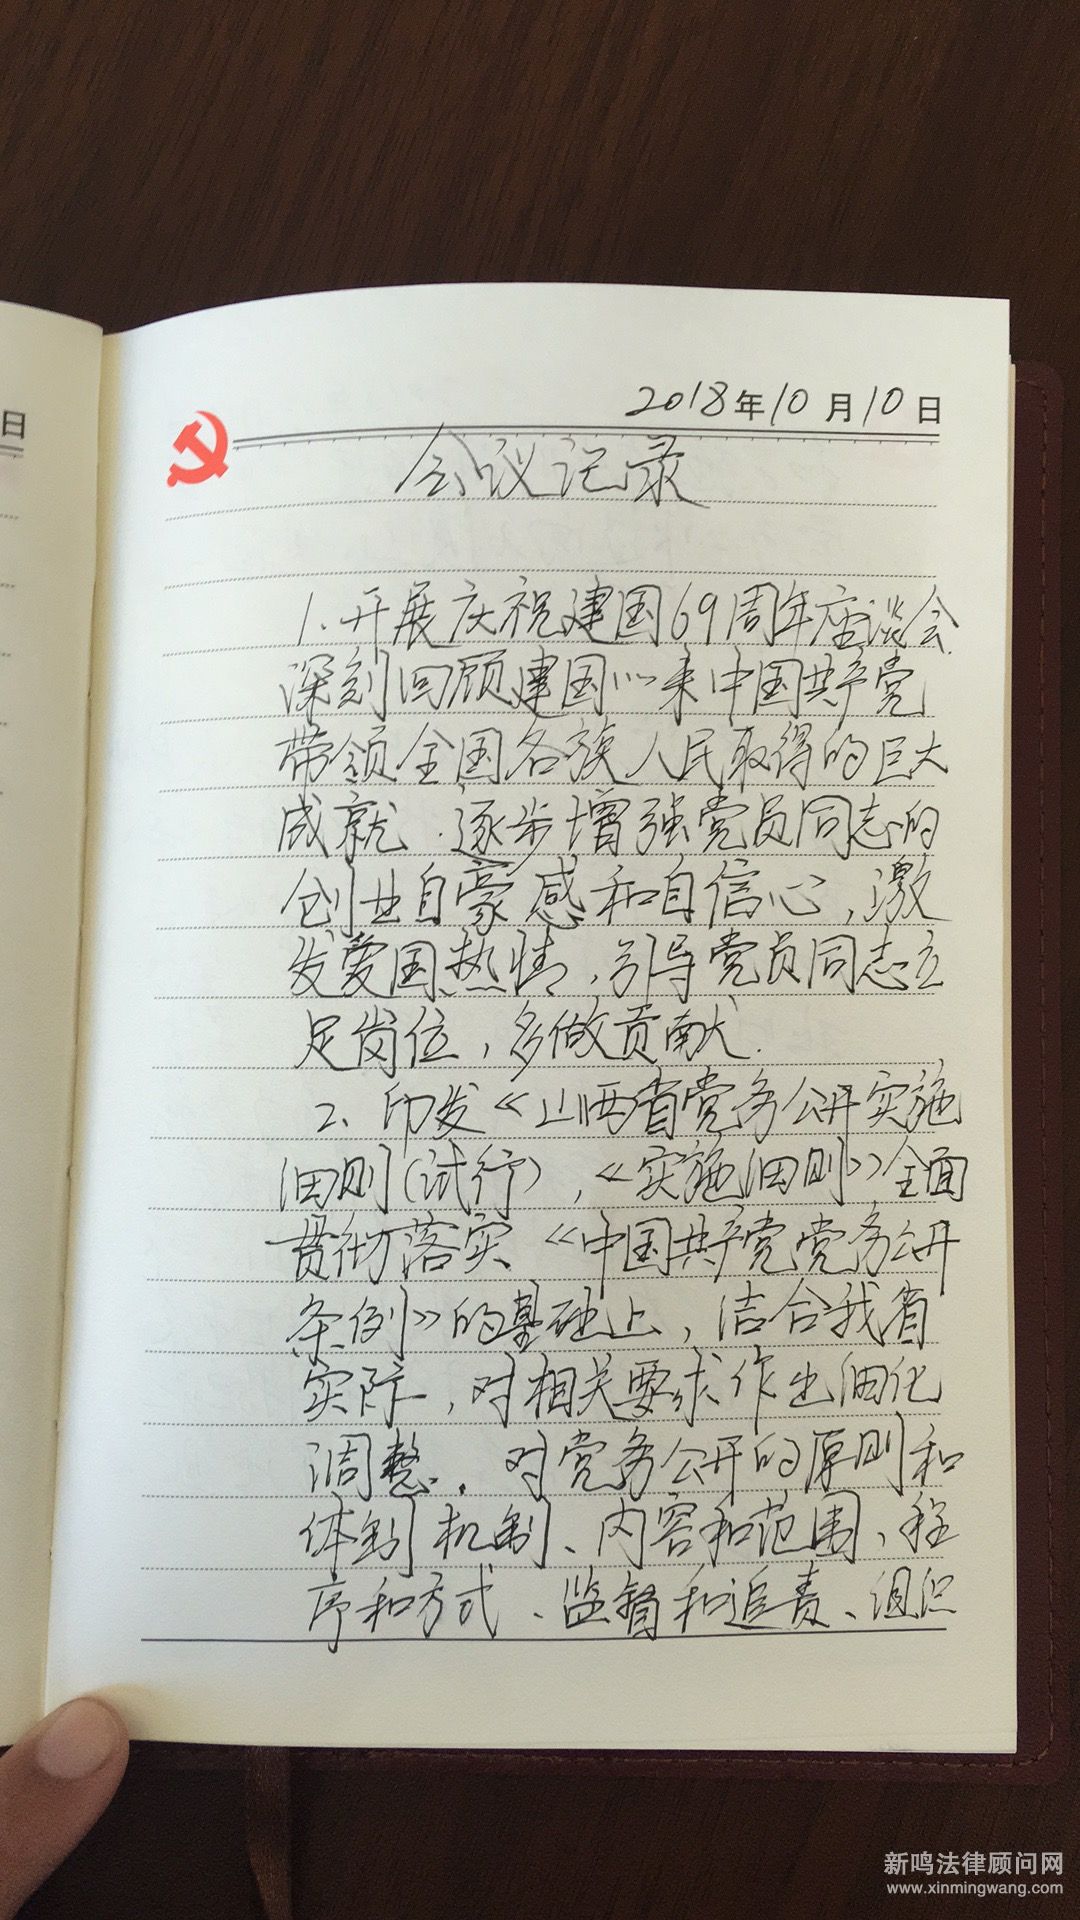 日
2018年10月10日
会议记录
1.开展庆祝建国69周年座谈会.
深刻回顾建国以来中国共产党
带领全国各族人民取得的巨大
成就.逐步增强党员同志的
创业自豪感和自信心,激
发爱国热情,引导党员同志立
足岗位,多做贡献.
2、印发《山西省党务公开实施
细则(试行),《实施细则》全面
贯彻落实《中国共产党党务公开
条例》的基础上,结合我省
实际,对相关要求作出细化
调整.对党务公开的原则和
体制机制、内容和范围、程
序和方式、监督和追责、组织
新鸣法律顾问网
www.xinmingwang.com